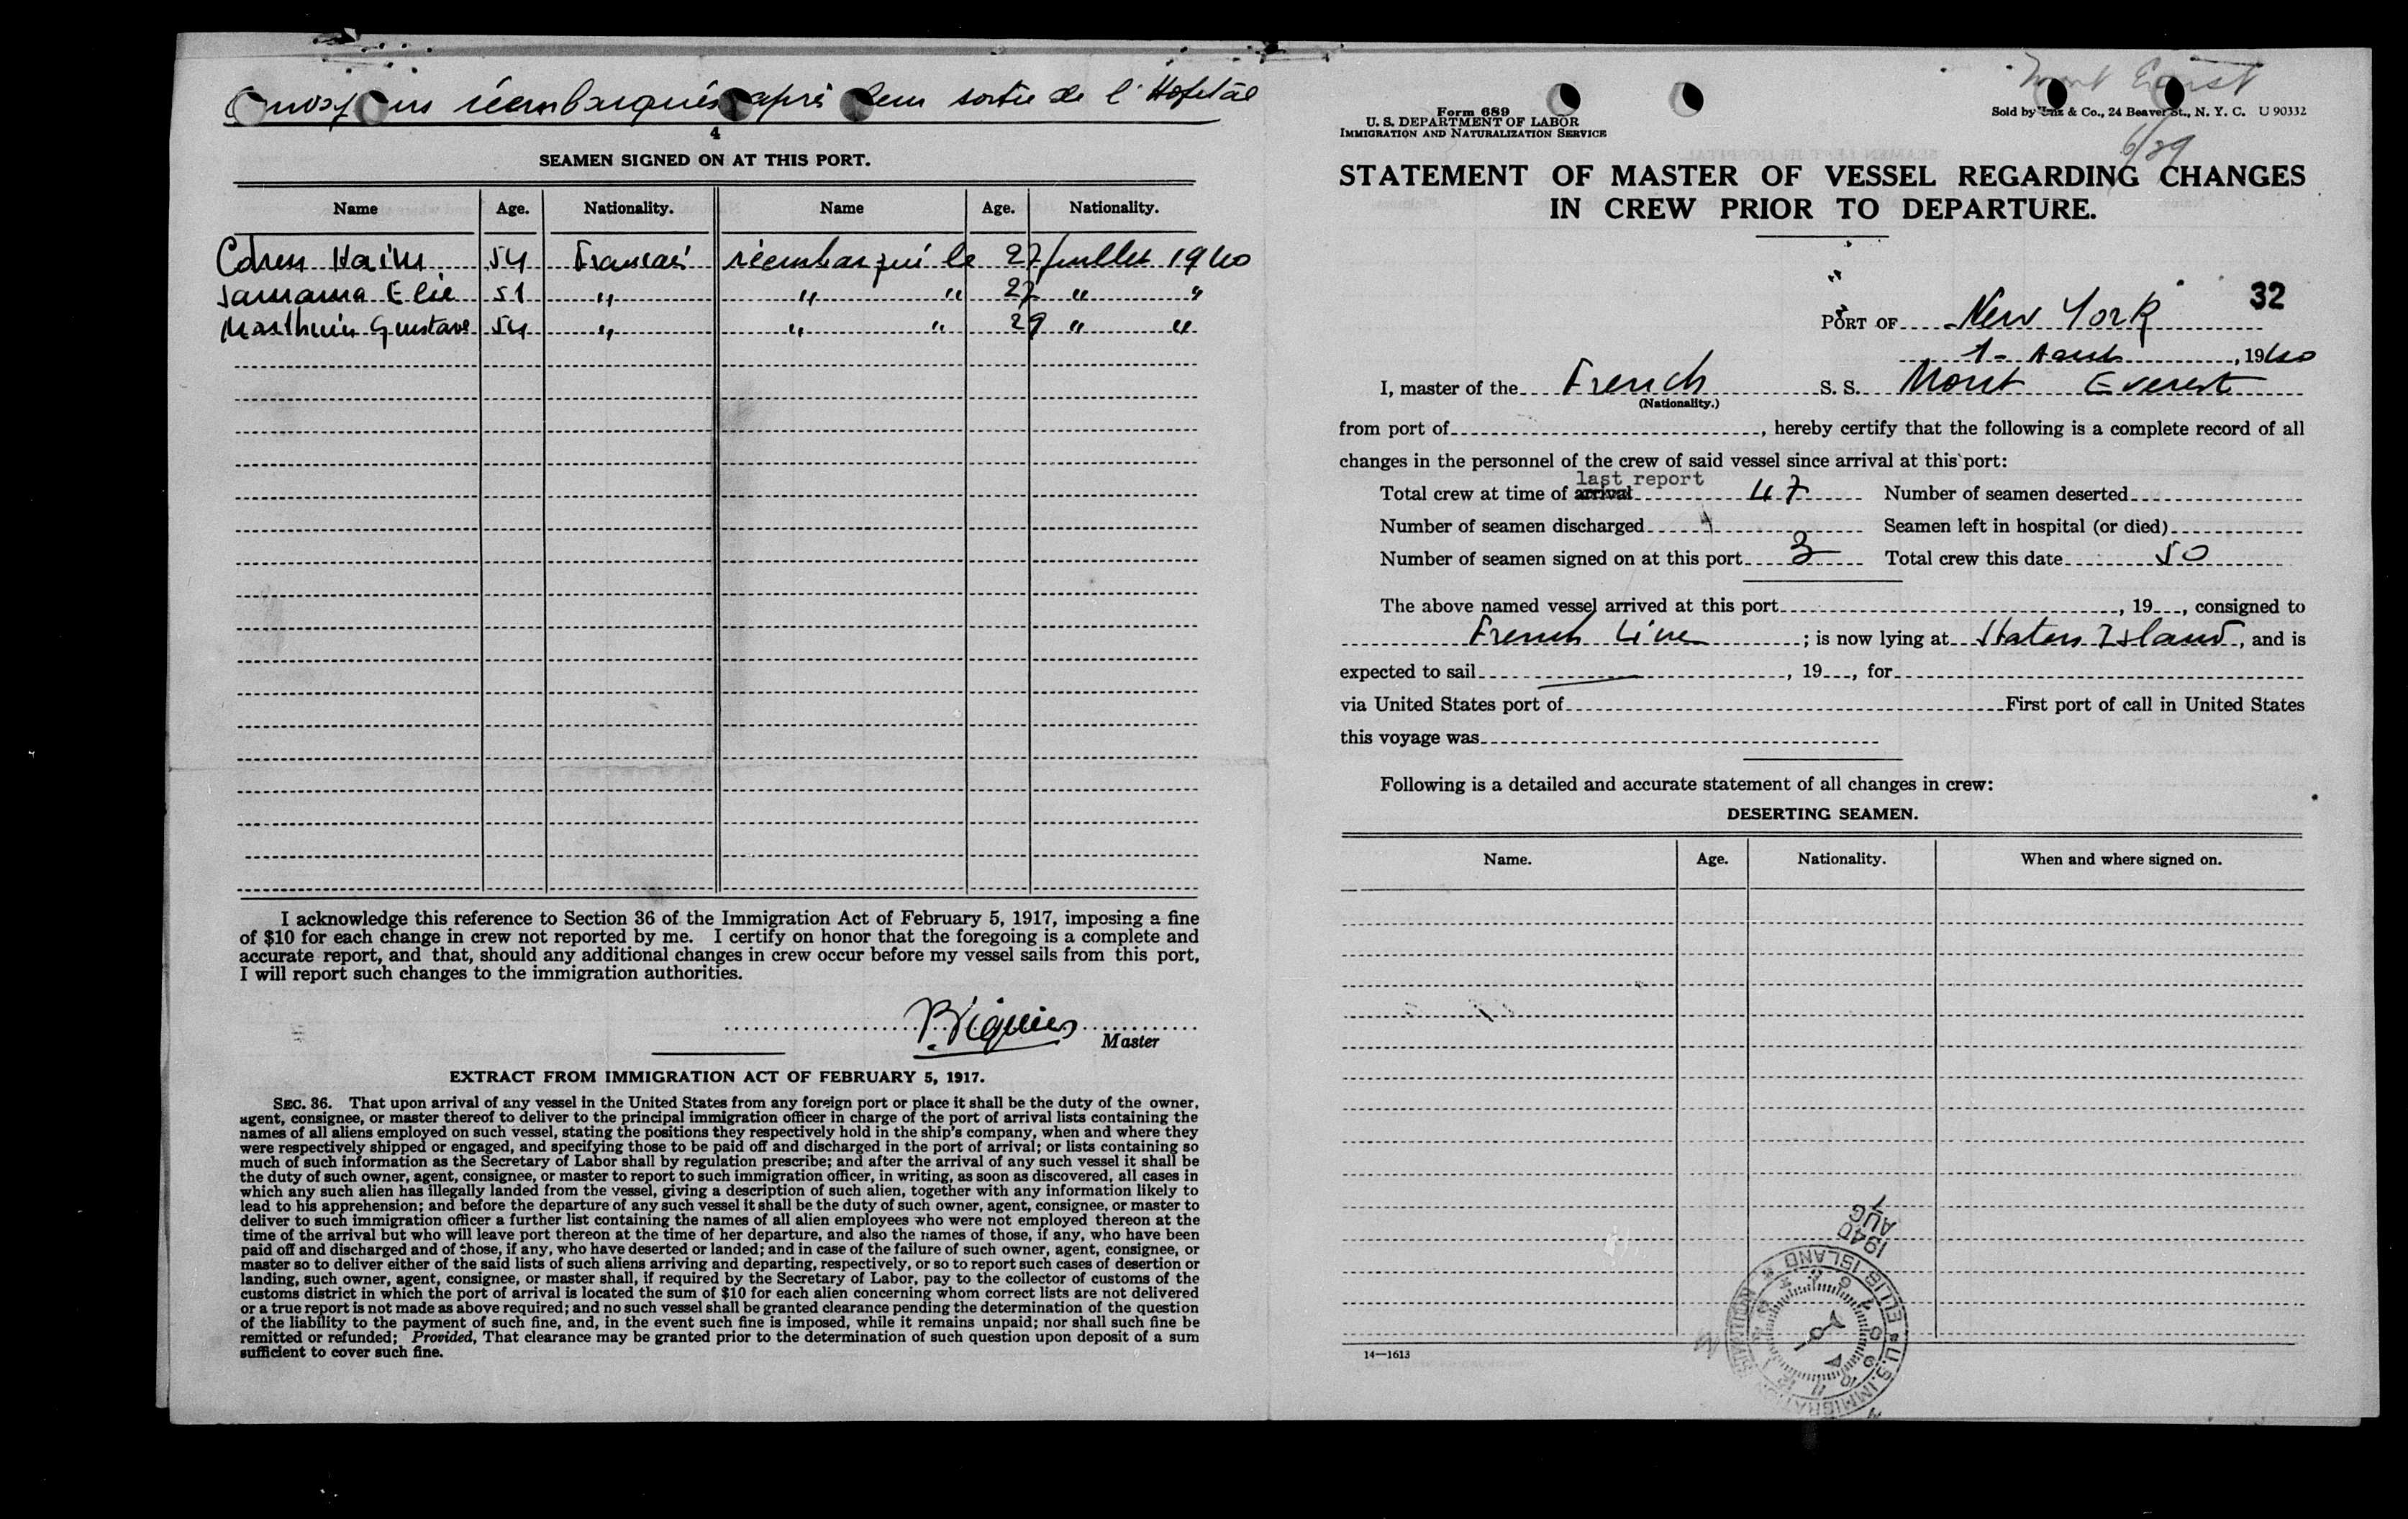 réembarqués après leur sortie de l'Hopital
4
SEAMEN SIGNED ON AT THIS PORT.
Name Age. Nationality. Name Age. Nationality.
Cohen Haim 54 Francais réembarqué le 27 juillet 1940
Samama Elie 51 " " " 27 " "
Gustave 54 " " " 29 " "
I acknowledge this reference to Section 36 of the Immigration Act of February 5, 1917, imposing a fine
of $10 for each change in crew not reported by me. I certify on honor that the foregoing is a complete and
accurate report, and that, should any additional changes in crew occur before my vessel sails from this port,
I will report such changes to the immigration authorities.
Master
EXTRACT FROM IMMIGRATION ACT OF FEBRUARY 5, 1917.
SEC. 36. That upon arrival of any vessel in the United States from any foreign port or place it shall be the duty of the owner,
agent, consignee, or master thereof to deliver to the principal immigration officer in charge of the port of arrival lists containing the
names of all aliens employed on such vessel, stating the positions they respectively hold in the ship's company, when and where they
were respectively shipped or engaged, and specifying those to be paid off and discharged in the port of arrival; or lists containing so
much of such information as the Secretary of Labor shall by regulation prescribe; and after the arrival of any such vessel it shall be
the duty of such owner, agent, consignee, or master to report to such immigration officer, in writing, as soon as discovered, all cases in
which any such alien has illegally landed from the vessel, giving a description of such alien, together with any information likely to
lead to his apprehension; and before the departure of any such vessel it shall be the duty of such owner, agent, consignee, or master to
deliver to such immigration officer a further list containing the names of all alien employees who were not employed thereon at the
time of the arrival but who will leave port thereon at the time of her departure, and also the names of those, if any, who have been
paid off and discharged and of those, if any, who have deserted or landed; and in case of the failure of such owner, agent, consignee, or
master so to deliver either of the said lists of such aliens arriving and departing, respectively, or so to report such cases of desertion or
landing, such owner, agent, consignee, or master shall, if required by the Secretary of Labor, pay to the collector of customs of the
customs district in which the port of arrival is located the sum of $10 for each alien concerning whom correct lists are not delivered
or a true report is not made as above required; and no such vessel shall be granted clearance pending the determination of the question
of the liability to the payment of such fine, and, in the event such fine is imposed, while it remains unpaid; nor shall such fine be
remitted or refunded; Provided, That clearance may be granted prior to the determination of such question upon deposit of a sum
sufficient to cover such fine.
Form 689
U. S. DEPARTMENT OF LABOR
IMMIGRATION AND NATURALIZATION SERVICE
Sold by & Co., 24 Beaver St., N. Y. C. U 90332
6/29
STATEMENT OF MASTER OF VESSEL REGARDING CHANGES
IN CREW PRIOR TO DEPARTURE.
32
PORT OF New York
1- Aout, 1940
I, master of the French S. S. Mont Everest
(Nationality.)
from port of , hereby certify that the following is a complete record of all
changes in the personnel of the crew of said vessel since arrival at this port:
last report
Total crew at time of arrival 47 Number of seamen deserted
Number of seamen discharged Seamen left in hospital (or died)
Number of seamen signed on at this port 3 Total crew this date 50
The above named vessel arrived at this port , 19 , consigned to
French Line ; is now lying at Staten Island, and is
expected to sail , 19 , for
via United States port of First port of call in United States
this voyage was
Following is a detailed and accurate statement of all changes in crew:
DESERTING SEAMEN.
Name. Age. Nationality. When and where signed on.
14—1613
1940
AUG
7
U.S. IMMIGRATION STATION ELLIS ISLAND